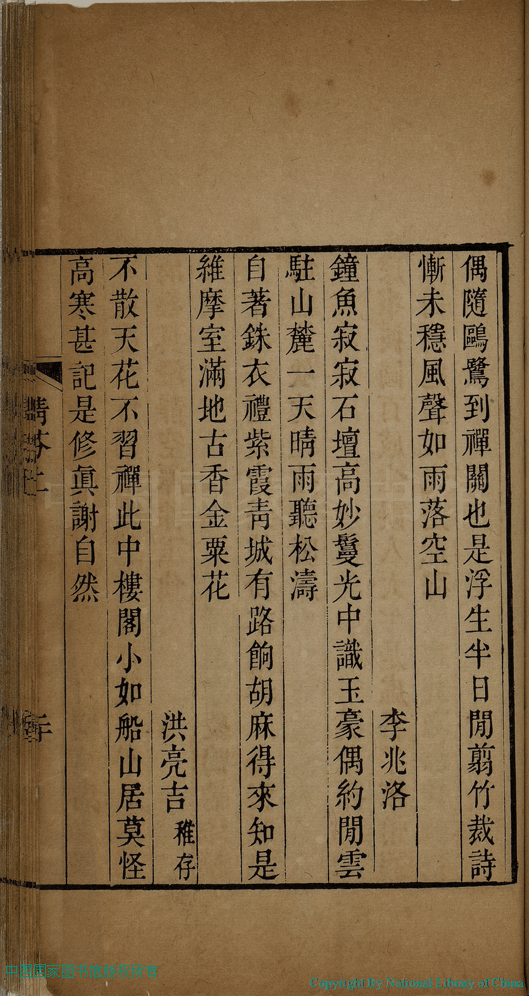 偶隨鷗鷺到禪關也是浮生半日閒翦竹裁詩
慚未穩風聲如雨落空山
李兆洛
鐘魚寂寂石壇高妙鬘光中識玉豪偶約閒雲
駐山麓一天晴雨聽松濤
自著銖衣禮紫霞靑城有路餉胡麻得來知是
維摩室滿地古香金粟花
洪亮吉 稚存
不散天花不習禪此中樓閣小如船山居莫怪
高寒甚記是修眞謝自然
Copyright By National Library of China